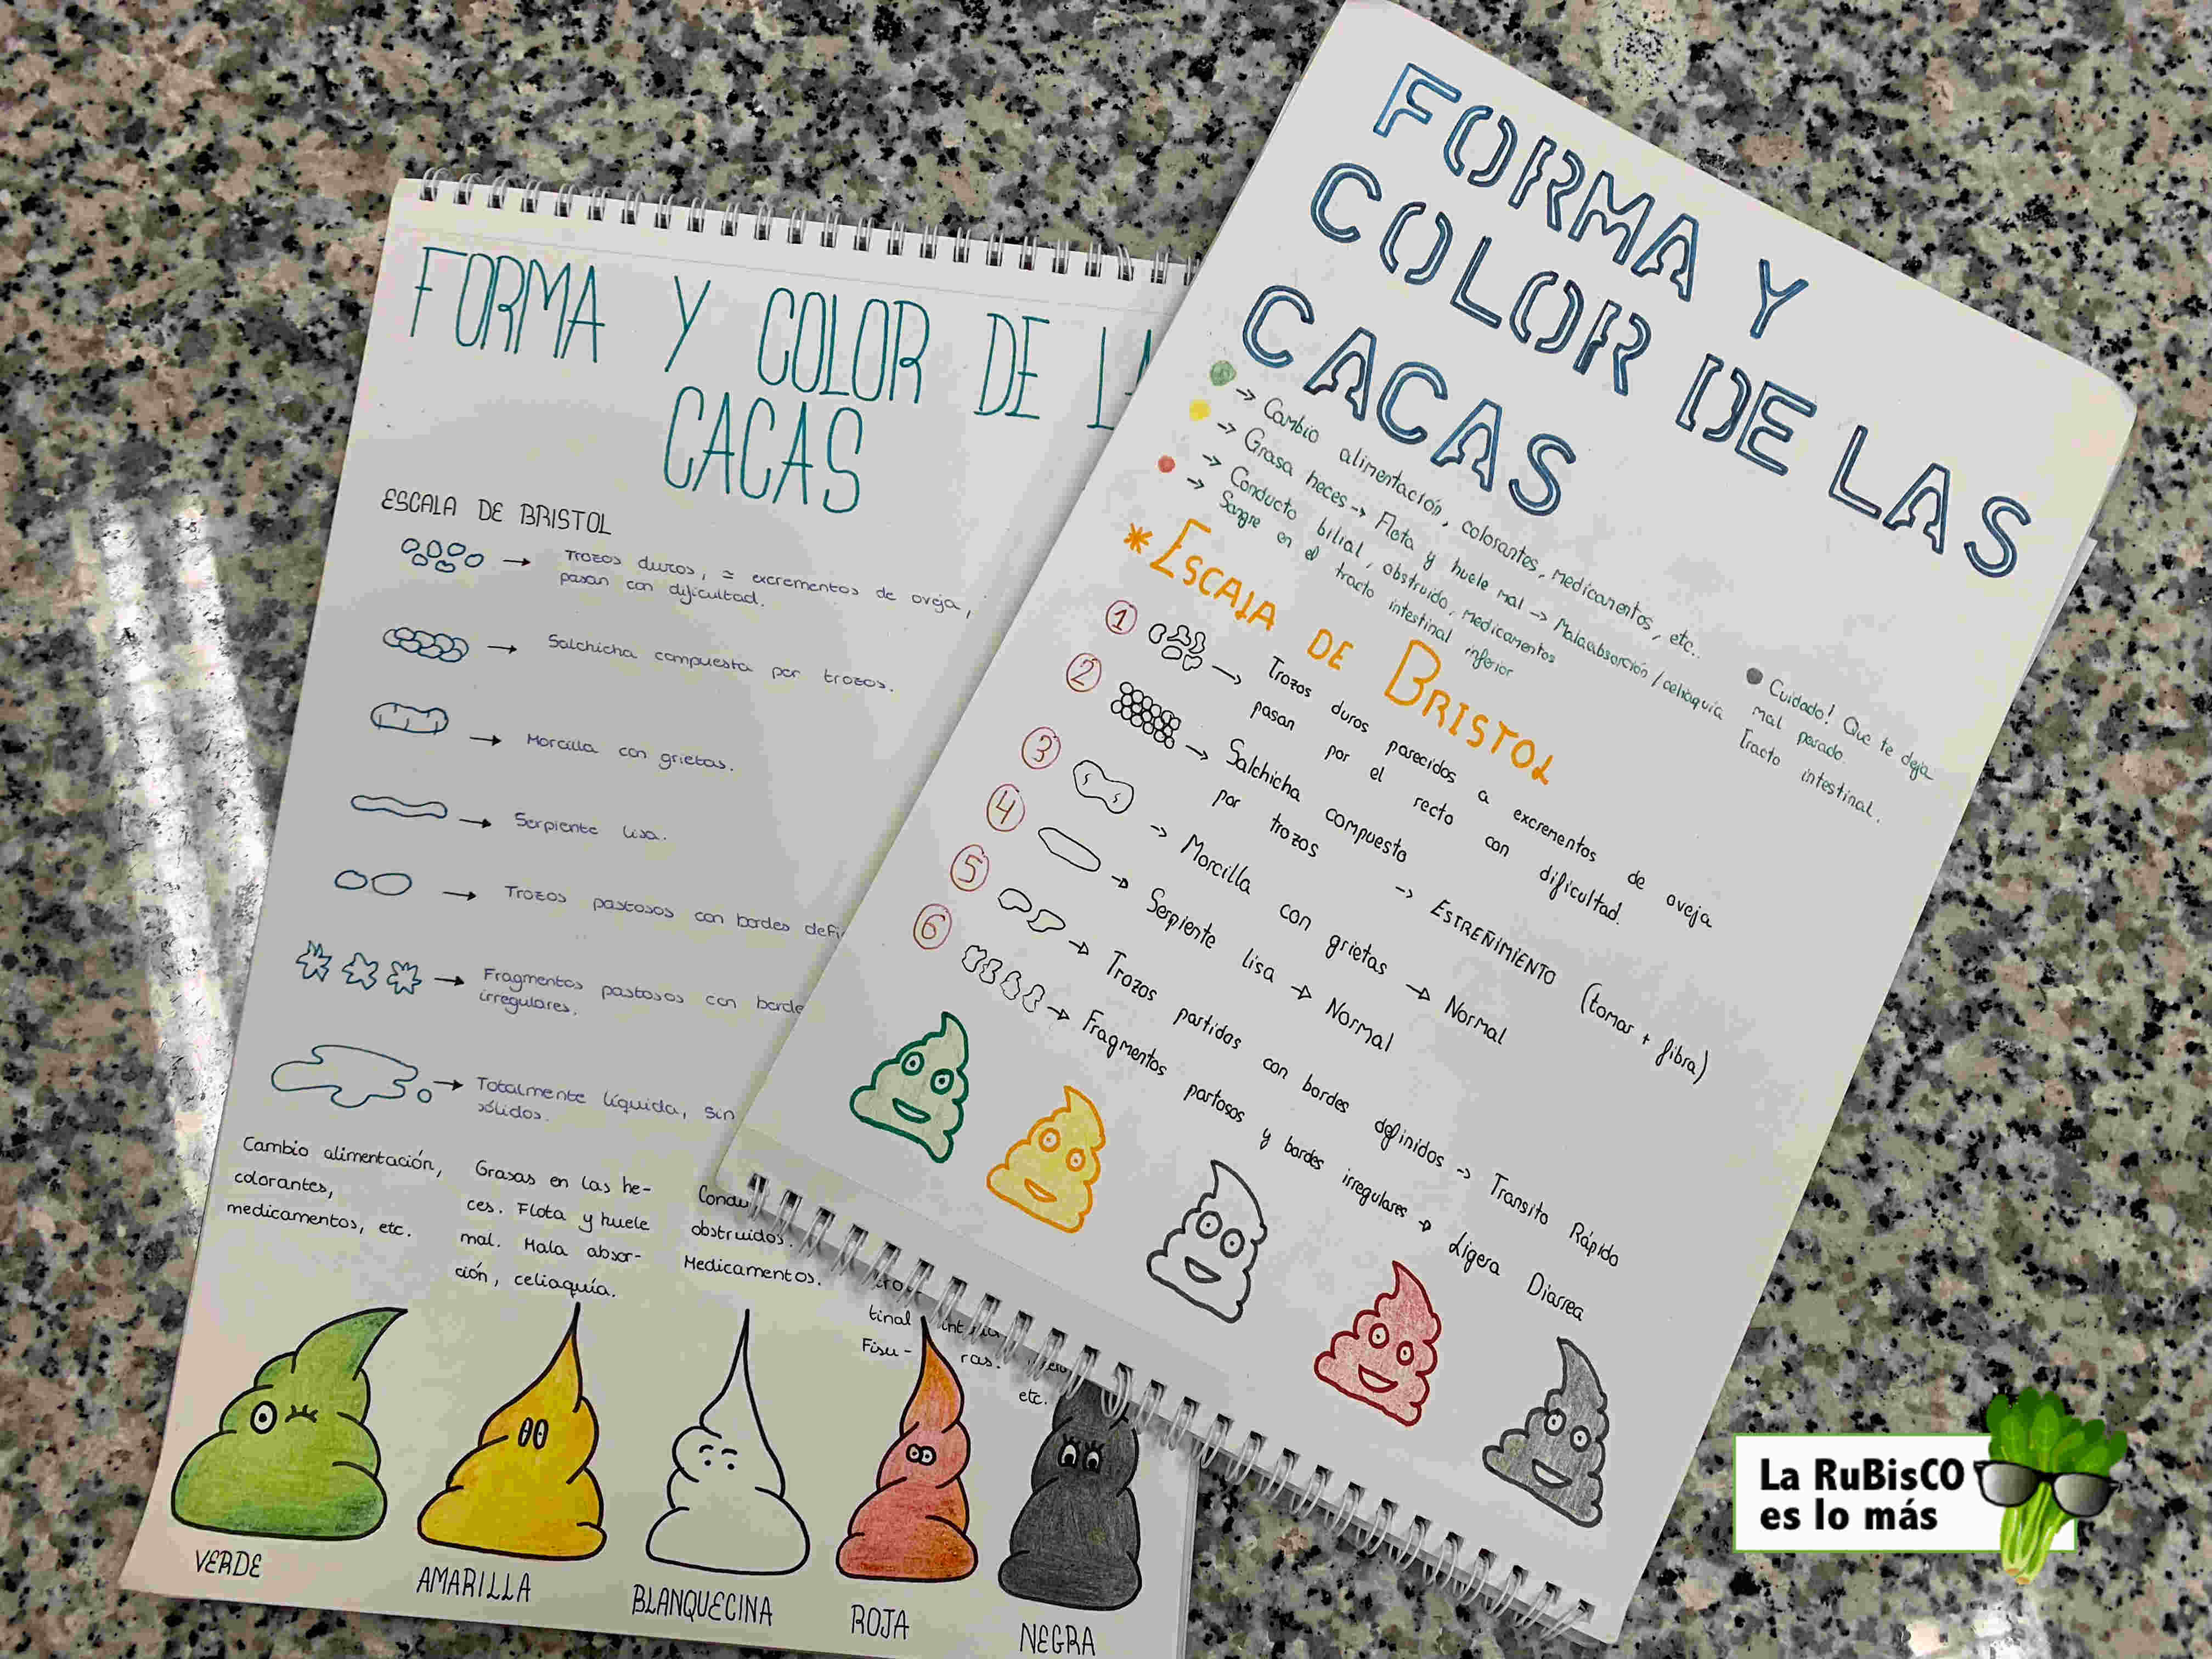 FORMA Y COLOR DE LA
CACAS
ESCALA DE BRISTOL
→ Trozos duros, = excrementos de oveja,
pasan con dificultad.
→ Salchicha compuesta por trozos.
→ Morcilla con grietas.
→ Serpiente lisa.
→ Trozos pastosos con bordes defi
→ Fragmentos pastosos con borde
irregulares.
→ Totalmente líquida, sin
sólidos.
Cambio alimentación,
colorantes,
medicamentos, etc.
Grasas en las he-
ces. Flota y huele
mal. Mala absor-
ción, celiaquía.
Condu
obstruidos.
Medicamentos.
tinal
Fisu- ras.
etc.
VERDE
AMARILLA
BLANQUECINA
ROJA
NEGRA
FORMA Y
COLOR DE LAS
CACAS
→ Cambio alimentación, colorantes, medicamentos, etc..
→ Grasa heces → Flota y huele mal → Malaabsorción / celiaquía
→ Conducto bilial, obstruido, medicamentos
→ Sangre en el tracto intestinal inferior
Cuidado! Que te deja
mal parado.
Tracto intestinal.
* ESCALA DE BRISTOL
1 → Trozos duros parecidos a excrementos de oveja
pasan por el recto con dificultad.
2 → Salchicha compuesta
por trozos → ESTREÑIMIENTO (tomar + fibra)
3 → Morcilla con grietas → Normal
4 → Serpiente lisa → Normal
5 → Trozos partidos con bordes definidos → Transito Rápido
6 → Fragmentos partosos y bordes irregulares → Ligera Diarrea
La RuBisCO
es lo más